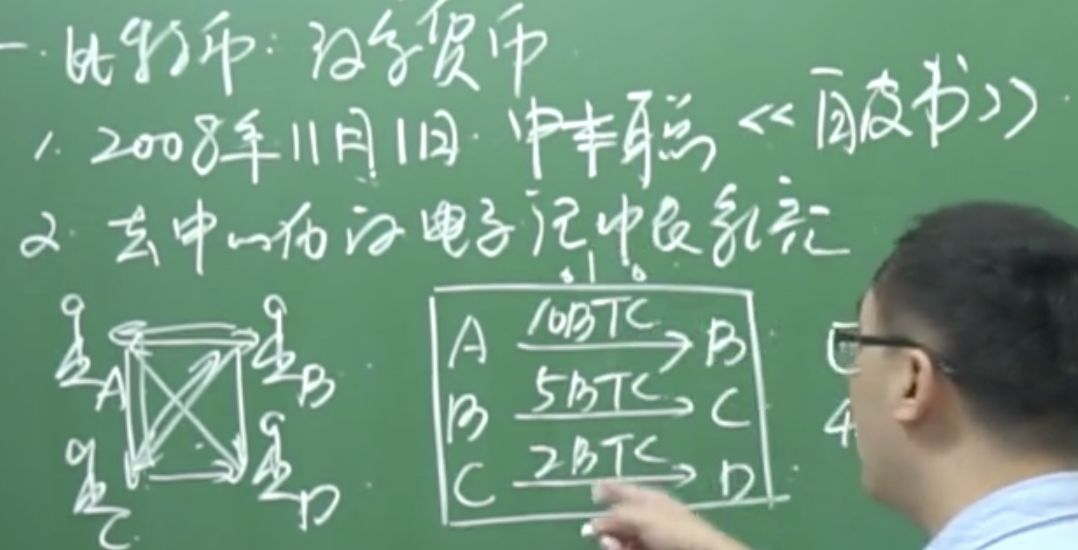 一.比特币:数字货币
1.2008年11月1日.中本聪《白皮书》
2.去中心化的电子记帐系统
A 10BTC B
B 5BTC C
C 2BTC D
A
B
C
D
4